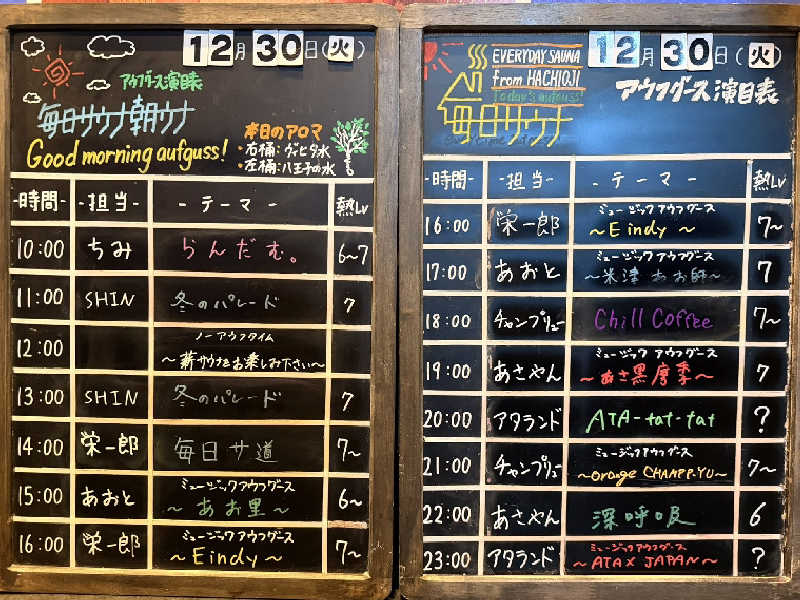 12月30日(火)
アウフグース演目表
毎日サウナ朝ウナ
Good morning aufguss!
本日のアロマ
・右桶:ヴィヒタ水
・左桶:八王子の水
-時間- -担当- -テーマ- 熱Lv
10:00 ちみ らんだむ。 6~7
11:00 SHIN 冬のパレード 7
12:00 ノーアウフタイム
~薪サウナをお楽しみ下さい~
13:00 SHIN 冬のパレード 7
14:00 栄一郎 毎日サ道 7~
15:00 あおと ミュージックアウフグース 6~
~あお里~
16:00 栄一郎 ミュージックアウフグース 7~
~Eindy~
12月30日(火)
EVERYDAY SAUNA
from HACHIOJI
Today's aufguss
毎日サウナ
アウフグース演目表
-時間- -担当- -テーマ- 熱Lv
16:00 栄一郎 ミュージックアウフグース 7~
~Eindy~
17:00 あおと ミュージックアウフグース 7
~米津あお師~
18:00 チャンプリュー Chill Coffee 7~
19:00 あさやん ミュージックアウフグース 7
~あさ黒摩季~
20:00 アタランド ATA-tat-tat ?
21:00 チャンプリュー ミュージックアウフグース 7~
~orange CHAMPP-YU~
22:00 あさやん 深呼吸 6
23:00 アタランド ミュージックアウフグース ?
~ATA X JAPAN~